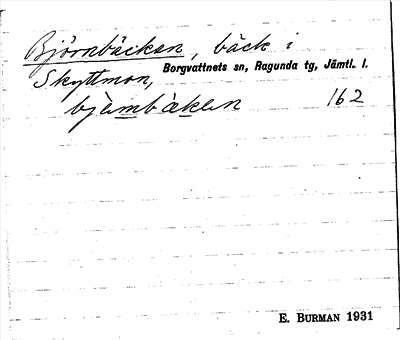 Björnbäcken, bäck i
Skyttmon, Borgvattnets sn, Ragunda tg, Jämtl. l.
bjembäken 162
E. BURMAN 1931